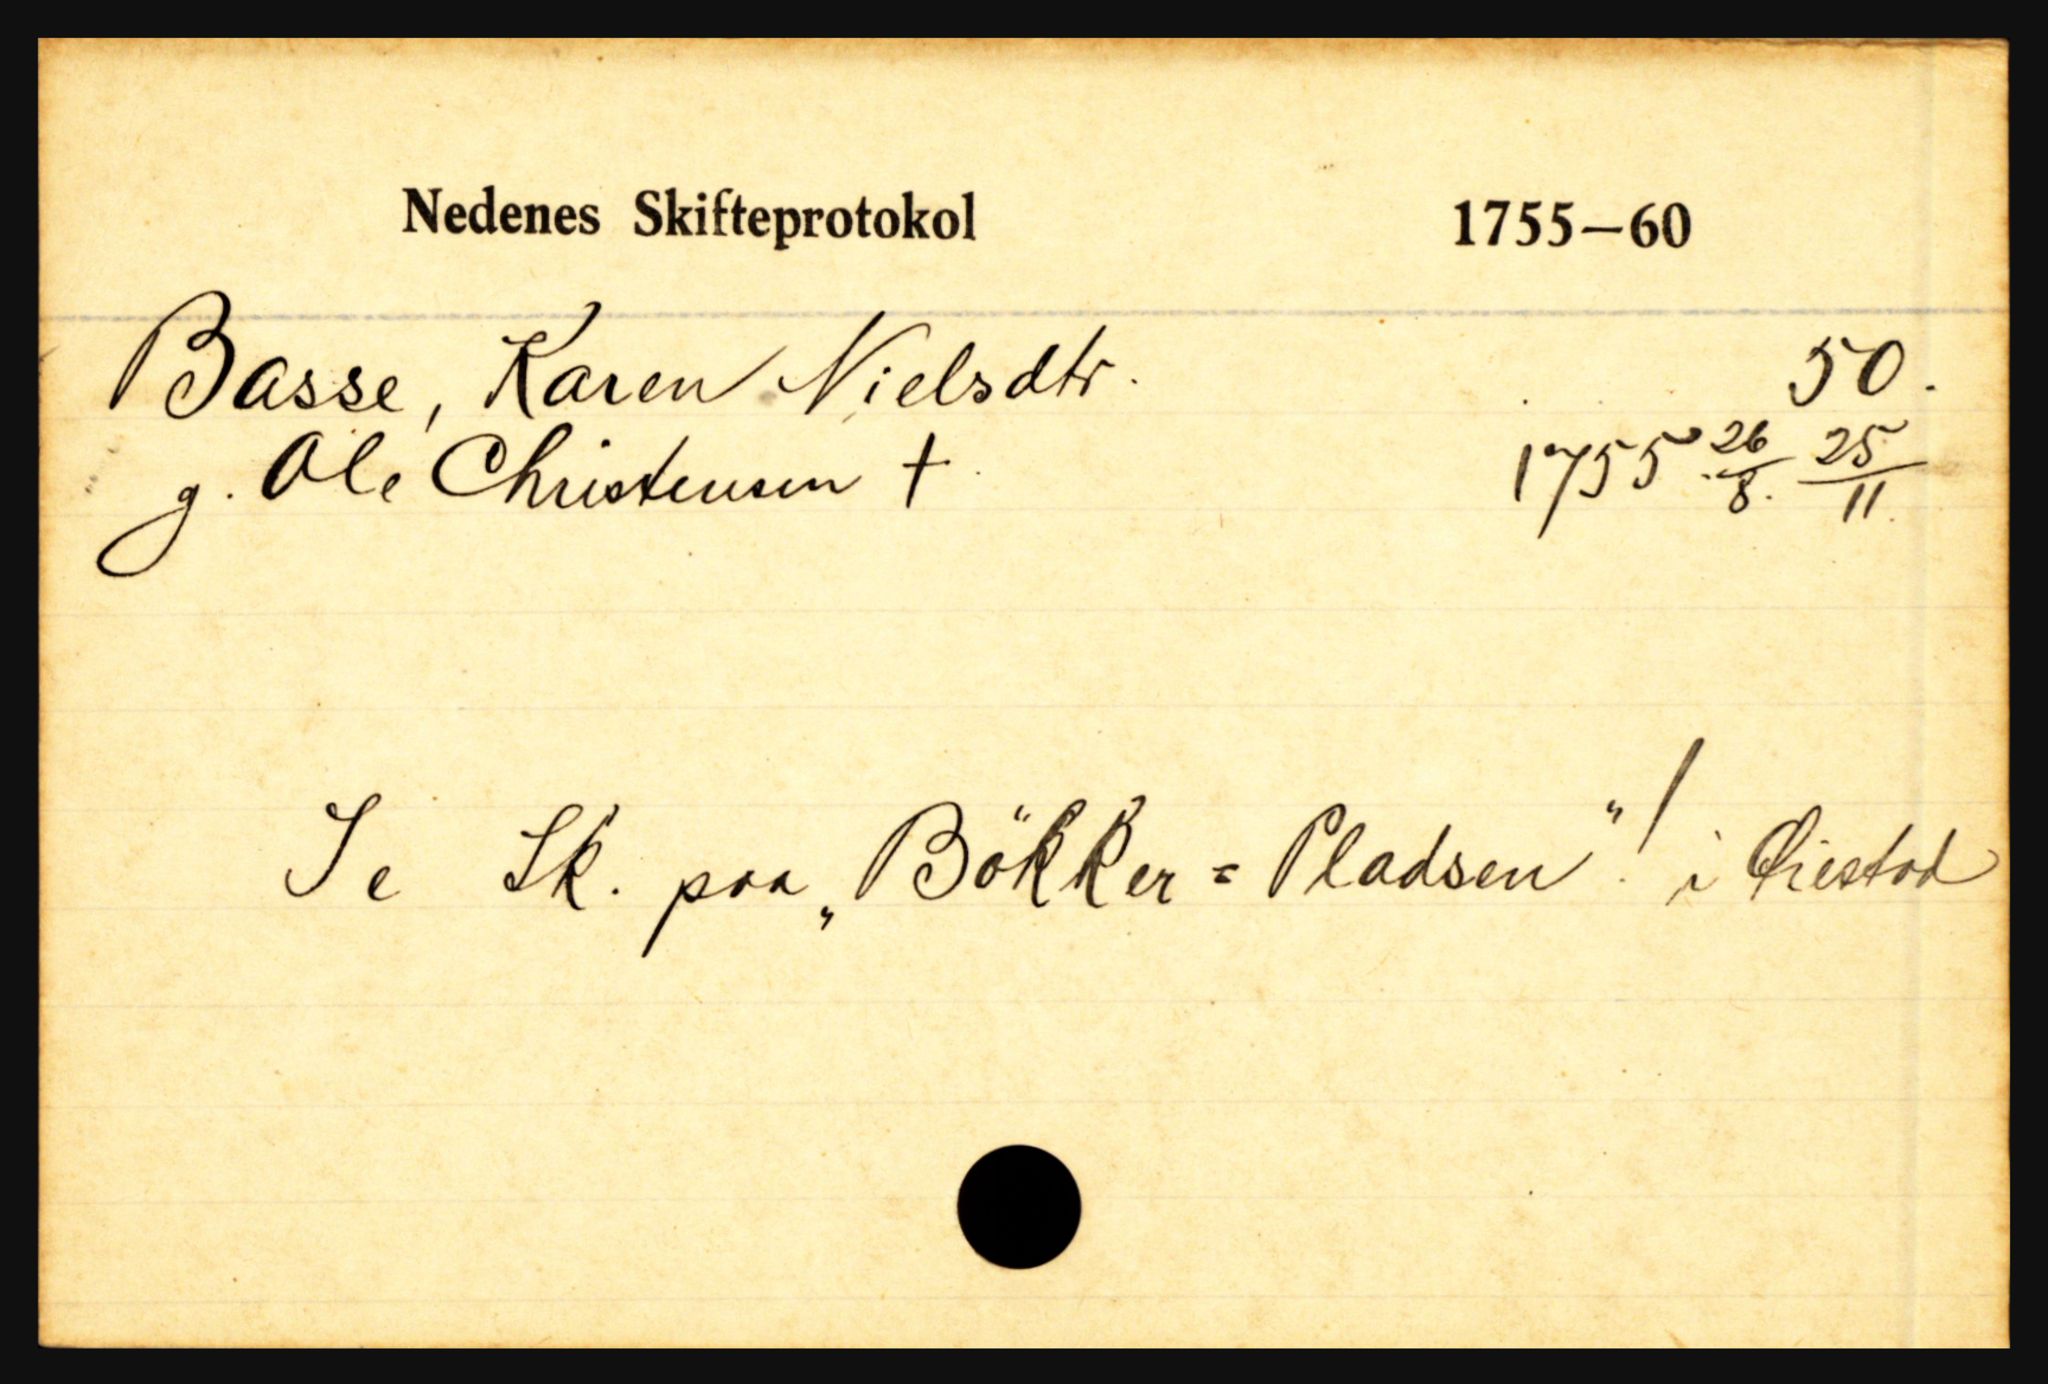 Nedenes Skifteprotokol 1755—60
Basse, Karen Nielsdtr. 50.
g. Ole Christensen † 1755 26/8. 25/11.
Se Sk. paa „Bökker = Pladsen"! i Øiestad